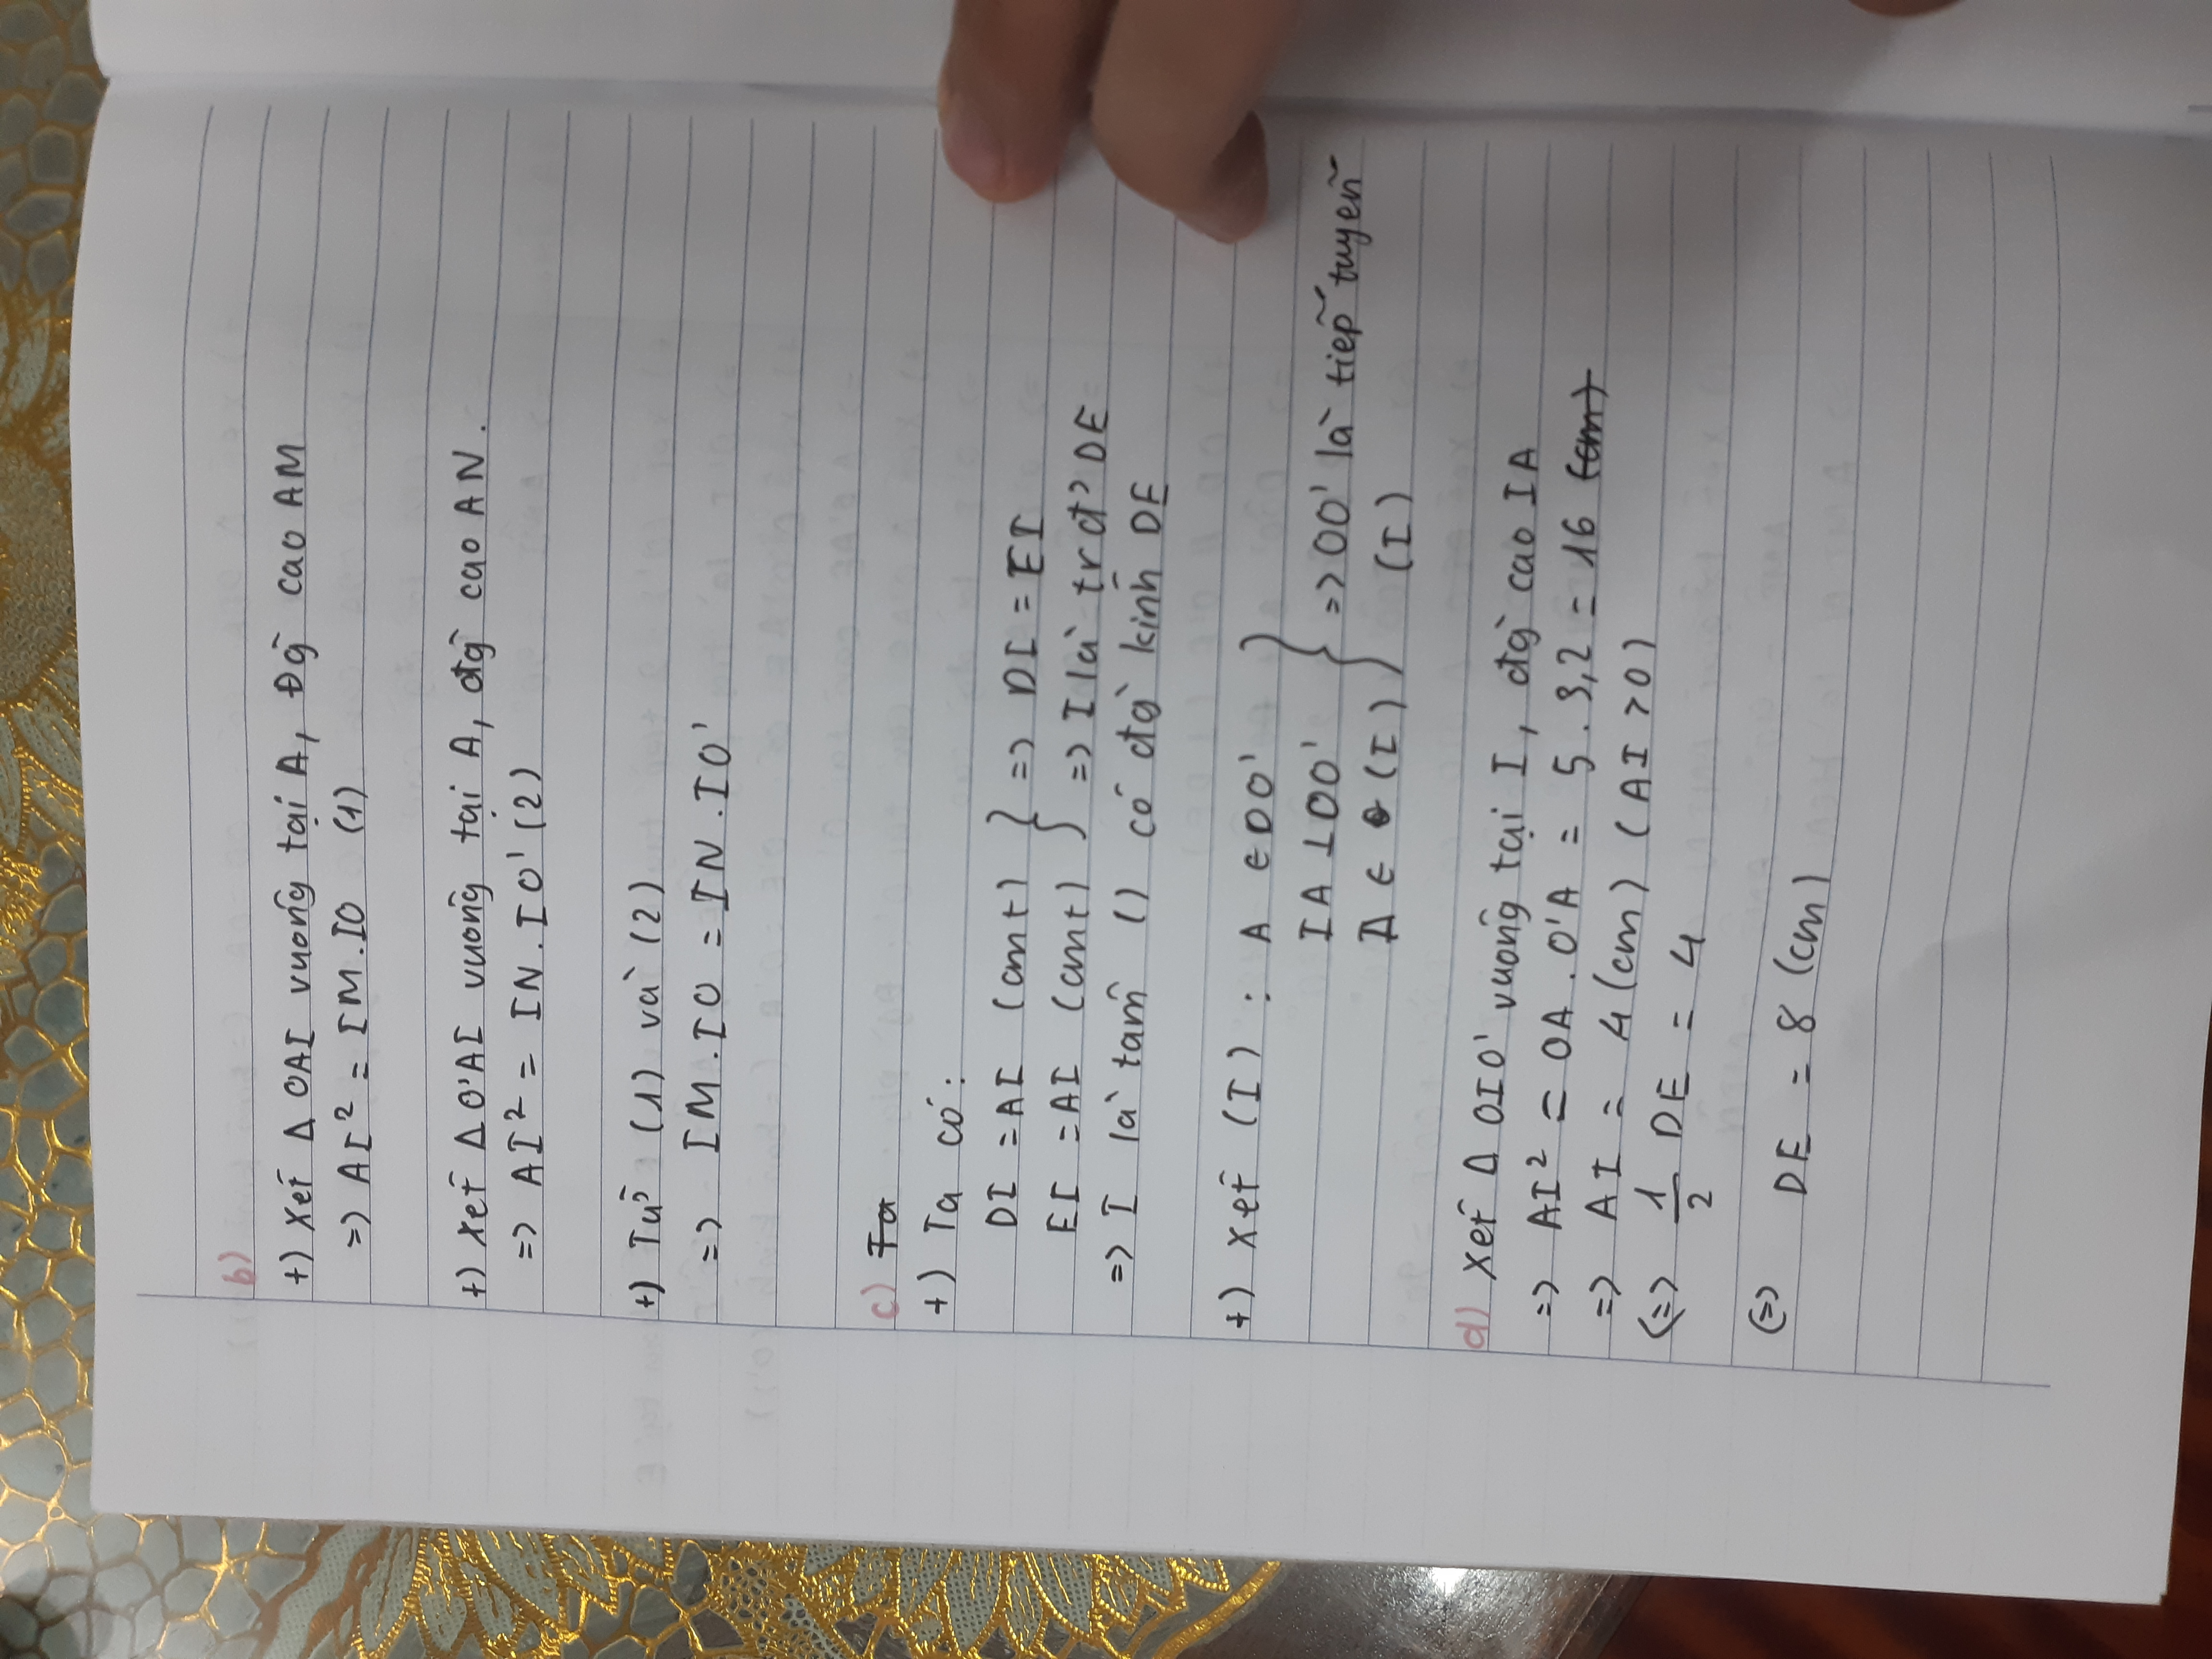 b)
+) Xét Δ OAI vuông tại A, Đg̀ cao AM
=> AI² = IM.IO (1)
+) Xét Δ O'AI vuông tại A, đg̀ cao AN.
=> AI² = IN.IO' (2)
+) Từ (1) và (2)
=> IM.IO = IN.IO'
c) Ta
+) Ta có:
DI = AI (cmt) } => DI = EI
EI = AI (cmt) } => I là trđ' DE
=> I là tâm () có đg̀ kính DE
+) Xét (I) : A ∈ OO'
IA ⊥ OO' } => OO' là tiếp tuyến
A ∈ (I) (I)
d) Xét Δ OIO' vuông tại I, đg̀ cao IA
=> AI² = OA.O'A = 5.3,2 = 16 (cm)
=> AI = 4 (cm) (AI > 0)
<=> 1/2 DE = 4
<=> DE = 8 (cm)